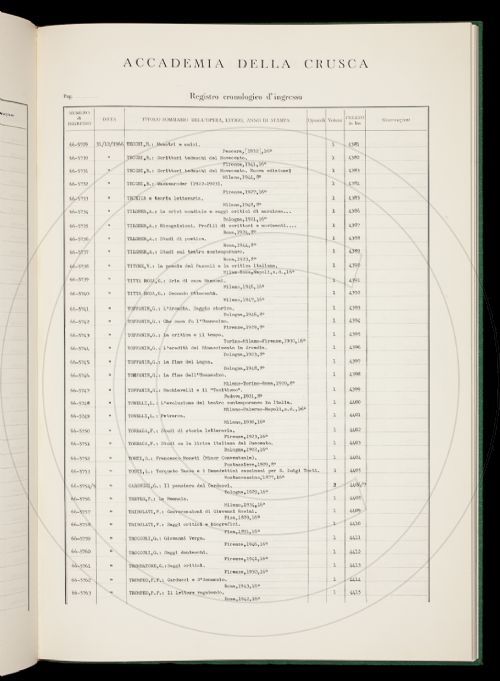 ACCADEMIA DELLA CRUSCA
Pag.
Registro cronologico d'ingresso
NUMERO di INGRESSO DATA TITOLO SOMMARIO DELL'OPERA, LUOGO, ANNO DI STAMPA Opuscoli Volumi PREZZO in lire Osservazioni
66-5729 31/12/1966 TECCHI,B.: Maestri e amici. 1 4381
Pescara,[1932],16°
66-5730 " TECCHI,B.: Scrittori tedeschi del Novecento. 1 4382
Firenze,1941,16°
66-5731 " TECCHI,B.: Scrittori tedeschi del Novecento. Nuova edizione 1 4383
Milano,1944,8°
66-5732 " TECCHI,B.: Wackenroder 1 4384
Firenze,1927,16°
66-5733 " TECNICA e teoria letteraria. 1 4385
Milano,1948,8°
66-5734 " TILGHER,A.: La crisi mondiale e saggi critici di marxismo... 1 4386
Bologna,1921,16°
66-5735 " TILGHER,A.: Ricognizioni. Profili di scrittori e movimenti.... 1 4387
Roma,1924,8°
66-5736 " TILGHER,A.: Studi di poetica. 1 4388
Roma,1944,8°
66-5737 " TILGHER,A.: Studi sul teatro contemporaneo. 1 4389
Roma,1923,8°
66-5738 " TITONE,V.: La poesia del Pascoli e la critica italiana. 1 4390
Milano-Roma-Napoli,s.d.,16°
66-5739 " TITTA ROSA,G.: Aria di casa Manzoni. 1 4391
Milano,1946,16°
66-5740 " TITTA ROSA,G.: Secondo Ottocento. 1 4392
Milano,1947,16°
66-5741 " TOFFANIN,G.: L'Arcadia. Saggio storico. 1 4393
Bologna,1946,8°
66-5742 " TOFFANIN,G.: Che cosa fu l'Umanesimo. 1 4394
Firenze,1929,8°
66-5743 " TOFFANIN,G.: La critica e il tempo. 1 4395
Torino-Milano-Firenze,1930,16°
66-5744 " TOFFANIN,G.: L'eredità del Rinascimento in Arcadia. 1 4396
Bologna,1923,8°
66-5745 " TOFFANIN,G.: La fine del Logos. 1 4397
Bologna,1948,8°
66-5746 " TOFFANIN,G.: La fine dell'Umanesimo. 1 4398
Milano-Torino-Roma,1920,8°
66-5747 " TOFFANIN,G.: Machiavelli e il "Tacitismo". 1 4399
Padova,1921,8°
66-5748 " TONELLI,L.: L'evoluzione del teatro contemporaneo in Italia. 1 4400
Milano-Palermo-Napoli,s.d.,16°
66-5749 " TONELLI,L.: Petrarca. 1 4401
Milano,1930,16°
66-5750 " TORRACA,F.: Studi di storia letteraria. 1 4402
Firenze,1923,16°
66-5751 " TORRACA,F.: Studi su la lirica italiana del Duecento. 1 4403
Bologna,1902,16°
66-5752 " TOSTI,L.: Francesco Moneti (Minor Conventuale). 1 4404
Pontassieve,1909,8°
66-5753 " TOSTI,L.: Torquato Tasso e i Benedettini cassinesi per D. Luigi Tosti. 1 4405
Montecassino,1877,16°
66-5754/5 " CARDUCCI,G.: Il pensiero del Carducci. 2 4406/7
Bologna,1929,16°
66-5756 " TREVES,P.: Lo Monnaie. 1 4408
Milano,1934,16°
66-5757 " TRIBOLATI,F.: Conversazioni di Giovanni Rosini. 1 4409
Pisa,1889,16°
66-5758 " TRIBOLATI,F.: Saggi critici e biografici. 1 4410
Pisa,1891,16°
66-5759 " TROCCOLI,G.: Giovanni Verga. 1 4411
Firenze,1946,16°
66-5760 " TROCCOLI,G.: Saggi danteschi. 1 4412
Firenze,1941,16°
66-5761 " TROMBATORE,G.: Saggi critici. 1 4413
Firenze,1950,16°
66-5762 " TROMPEO,P.P.: Carducci e D'Annunzio. 1 4414
Roma,1943,16°
66-5763 " TROMPEO,P.P.: Il lettore vagabondo. 1 4415
Roma,1942,16°